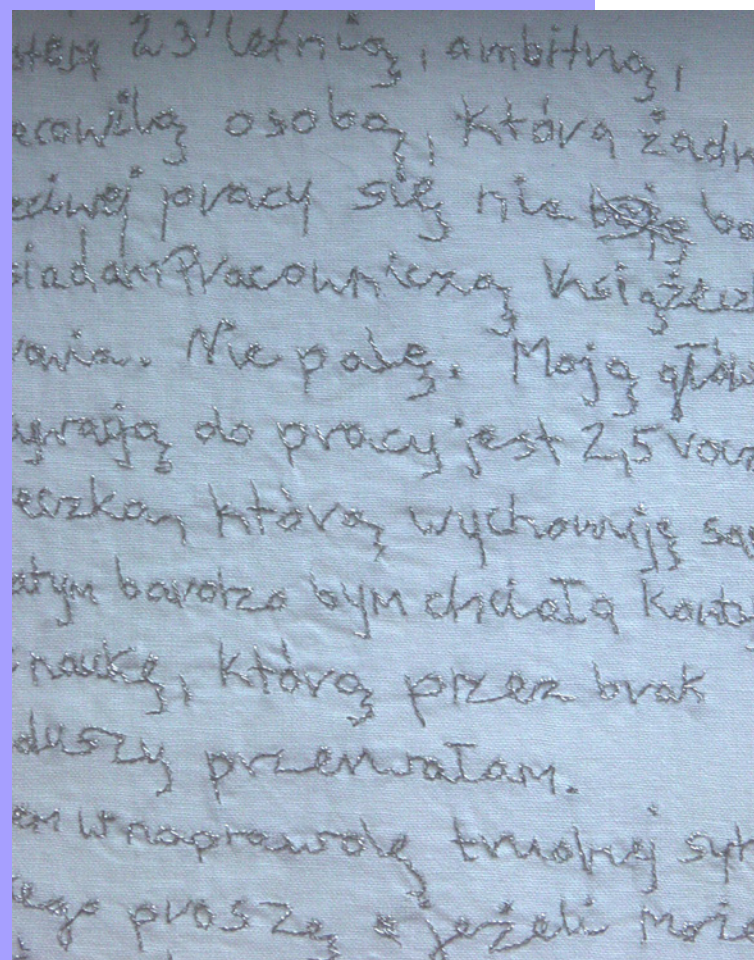 23 letnią, ambitną,
osobą, którą żadn
pracy się nie boję bo
siadam Pracowniczą książecz
wania. Nie palę. Moją głów
do pracy jest 2,5 rocz
którą wychowuję sa
atym bardzo bym chciałą konty
naukę, którą przez brak
duszy przerwałam.
em w naprawdę trudnej syt
proszę jeżeli może